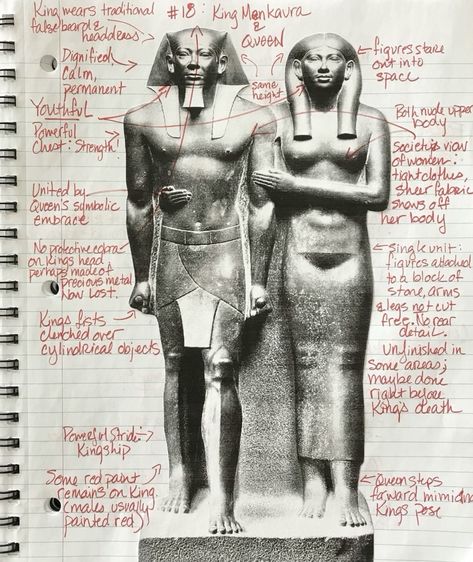 #18: King Menkaura
&
QUEEN
King wears traditional
false beard &
headdress
Dignified,
Calm,
permanent
Youthful
Powerful
Chest: Strength!
United by
Queen's symbolic
embrace
No protective cobra
on Kings head,
perhaps made of
precious metal
Now Lost.
Kings fists
clenched over
cylindrical objects
Powerful Stride:
Kingship
Some red paint
remains on King.
(males usually
painted red)
same
height
figures stare
out into
space
Both nude upper
body
Societies view
of women:
tight clothes,
sheer fabric
shows off
her body
Single unit:
figures attached
to a block of
stone, arms
& legs not cut
free. No rear
detail.
Unfinished in
some areas;
maybe done
right before
King's death
Queen steps
forward mimicing
Kings pose